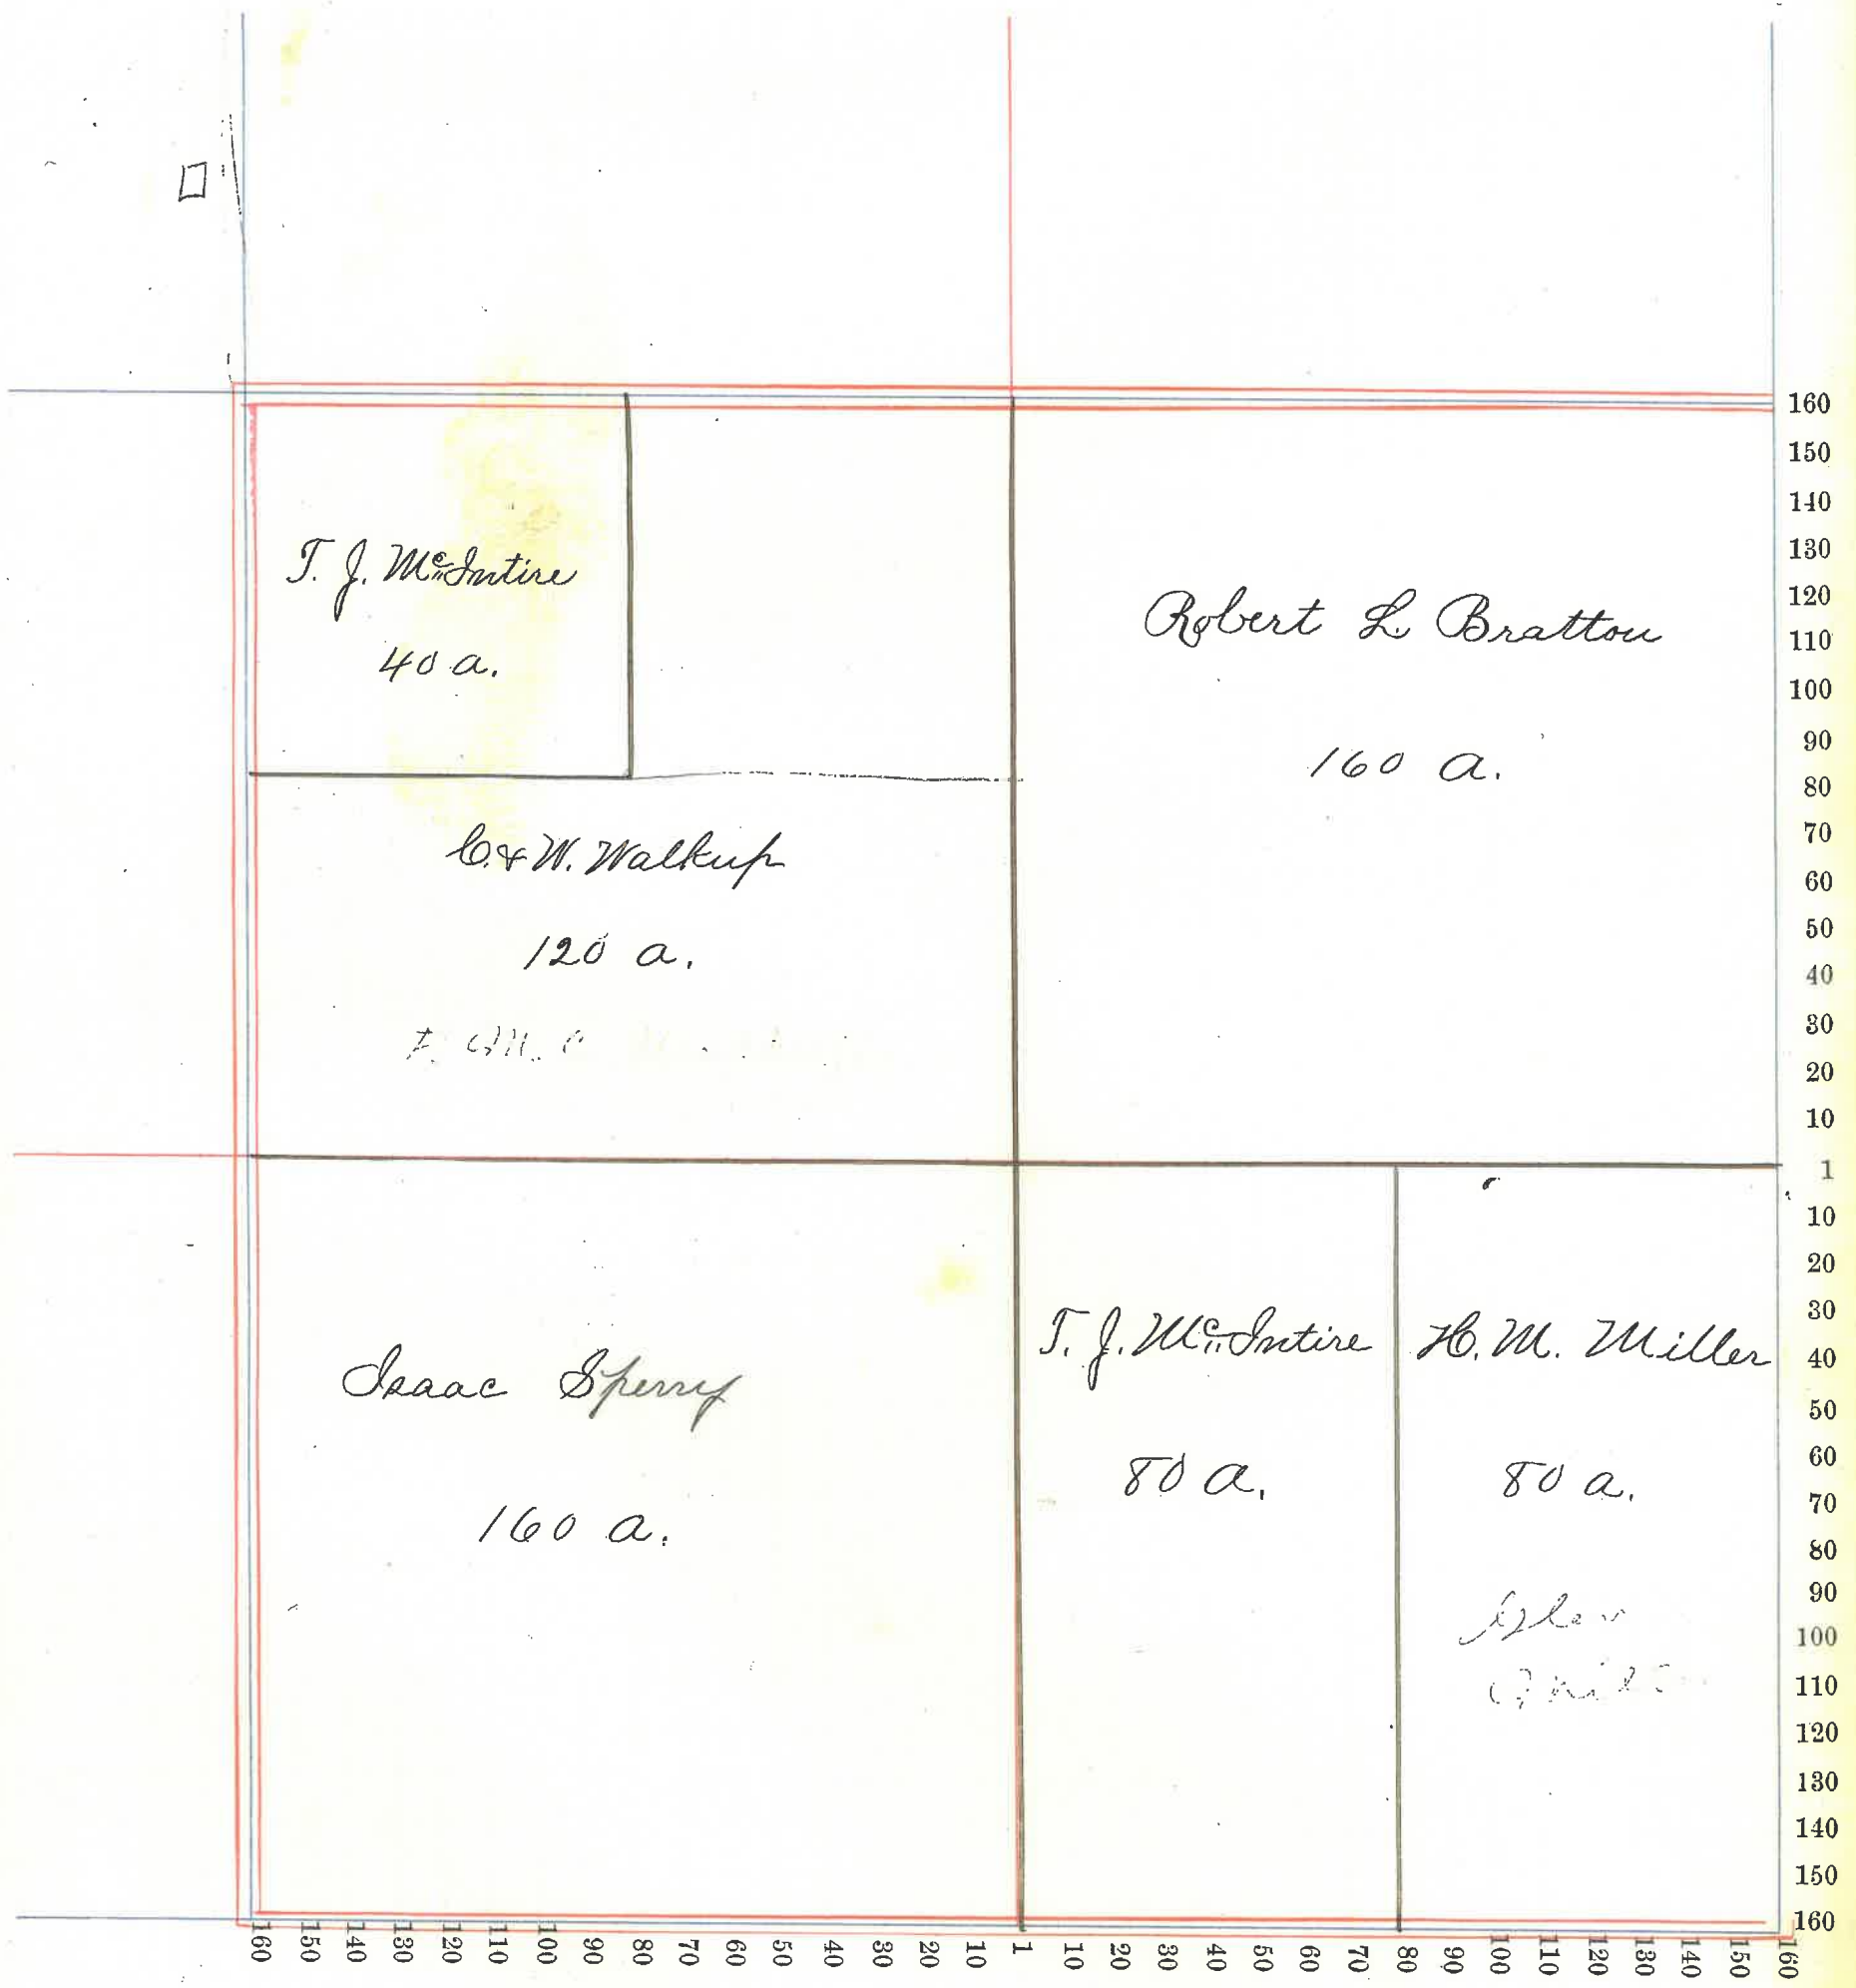 T. J. McIntire
40 a.
Robert L. Bratton
160 a.
C. & W. Walkup
120 a.
Isaac Sperry
160 a.
T. J. McIntire
80 a.
H. M. Miller
80 a.
160
150
140
130
120
110
100
90
80
70
60
50
40
30
20
10
1
10
20
30
40
50
60
70
80
90
100
110
120
130
140
150
160
160 150 140 130 120 110 100 90 80 70 60 50 40 30 20 10 1 10 20 30 40 50 60 70 80 90 100 110 120 130 140 150 160